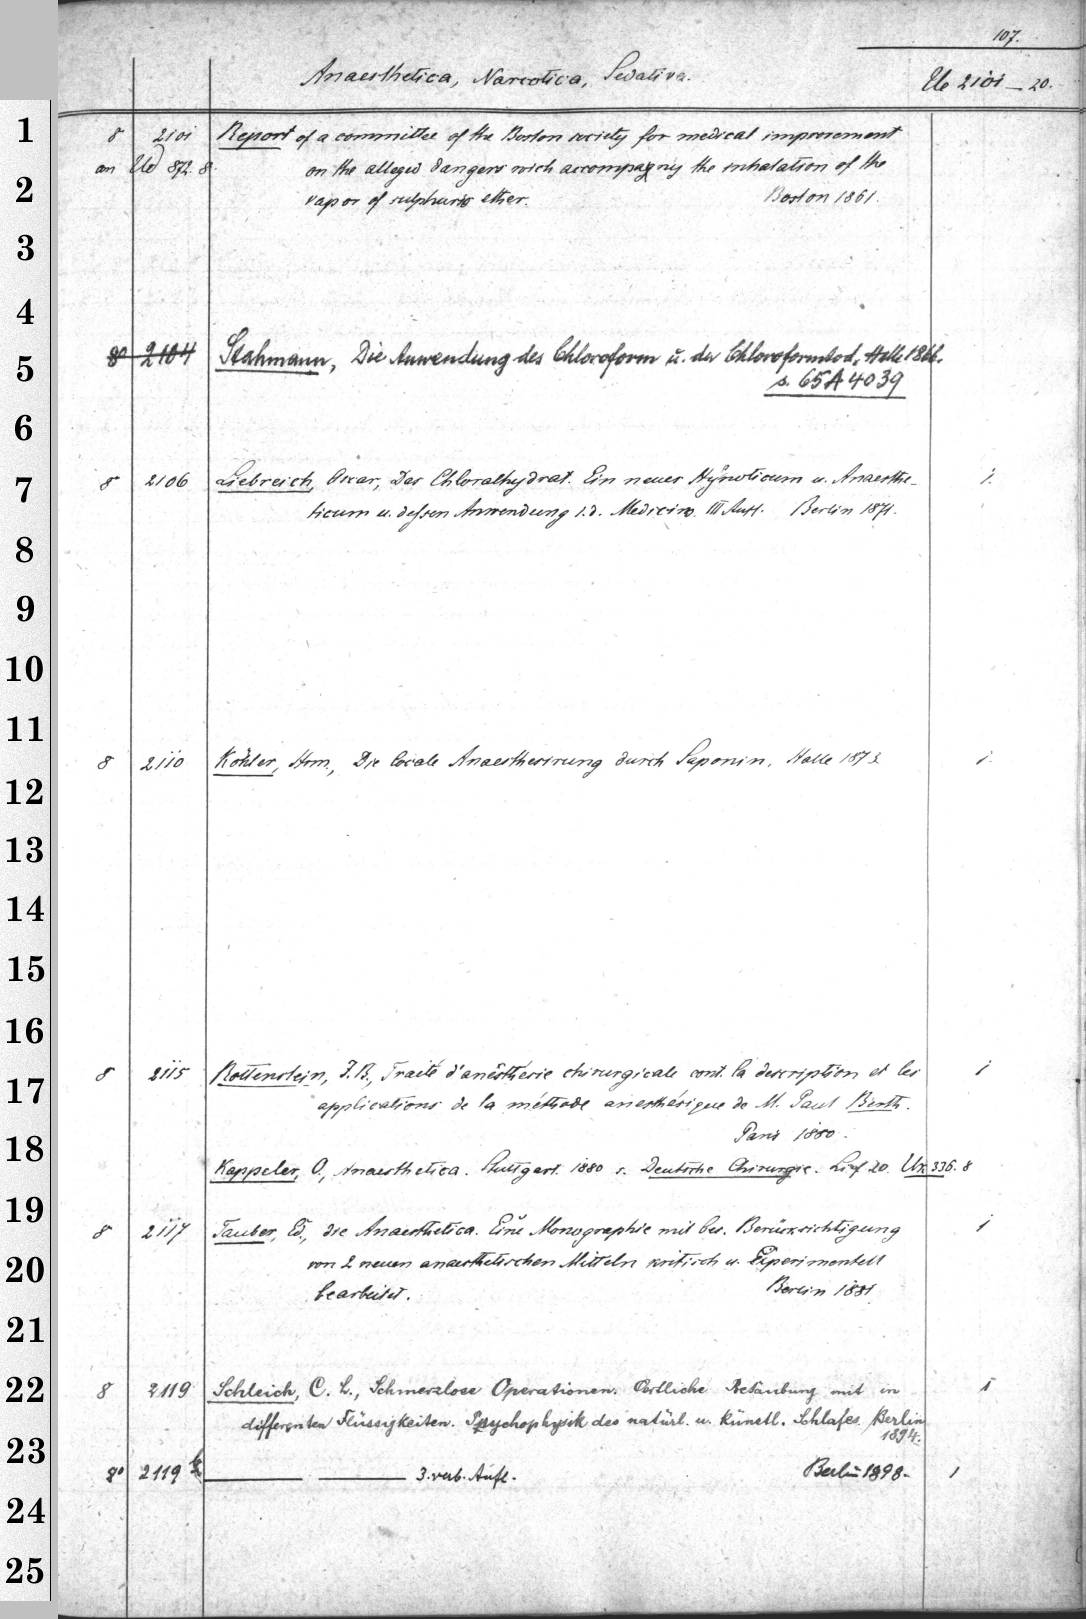 107.
Anaesthetica, Narcotica, Sedativa. Ue 2101 — 20.
1
8 2101 Report of a committee of the Boston society for medical improvement
an Ud 872. 8. on the alleged dangers wich accompagny the inhalation of the
2
vapor of sulphuric ether. Boston 1861.
3
4
8° 2104 Stahmann, Die Anwendung des Chloroform u. der Chloroformtod, Halle 1866.
5
s. 65 A 4039
6
7
8 2106 Liebreich, Oscar, Das Chloralhydrat. Ein neues Hypnoticum u. Anaesthe- 1.
ticum u. dessen Anwendung i. d. Medicin. III Aufl. Berlin 1871.
8
9
10
11
8 2110 Köhler, Hrm., Die locale Anaesthesirung durch Saponin. Halle 1873. 1.
12
13
14
15
16
8 2115 Rottenstein, J. B., Traité d'anésthésie chirurgicale cont. la description et les 1
17
applications de la méthode anesthésique de M. Paul Berth.
Paris 1880.
18
Kappeler, O., Anaesthetica. Stuttgart. 1880 s. Deutsche Chirurgie. Lief 20. Ux 336. 8
19
8 2117 Tauber, Ed., die Anaesthetica. Eine Monographie mit bes. Berücksichtigung 1
20
von 2 neuen anaesthetischen Mitteln kritisch u. Experimentell
bearbeitet. Berlin 1881
21
22
8 2119 Schleich, C. L., Schmerzlose Operationen. Oertliche Betäubung mit in 1
differenten Flüssigkeiten. Psychophysik des natürl. u. künstl. Schlafes. Berlin
1894.
23
8° 2119 b ——— ——— 3. verb. Aufl. Berlin 1898. 1
24
25